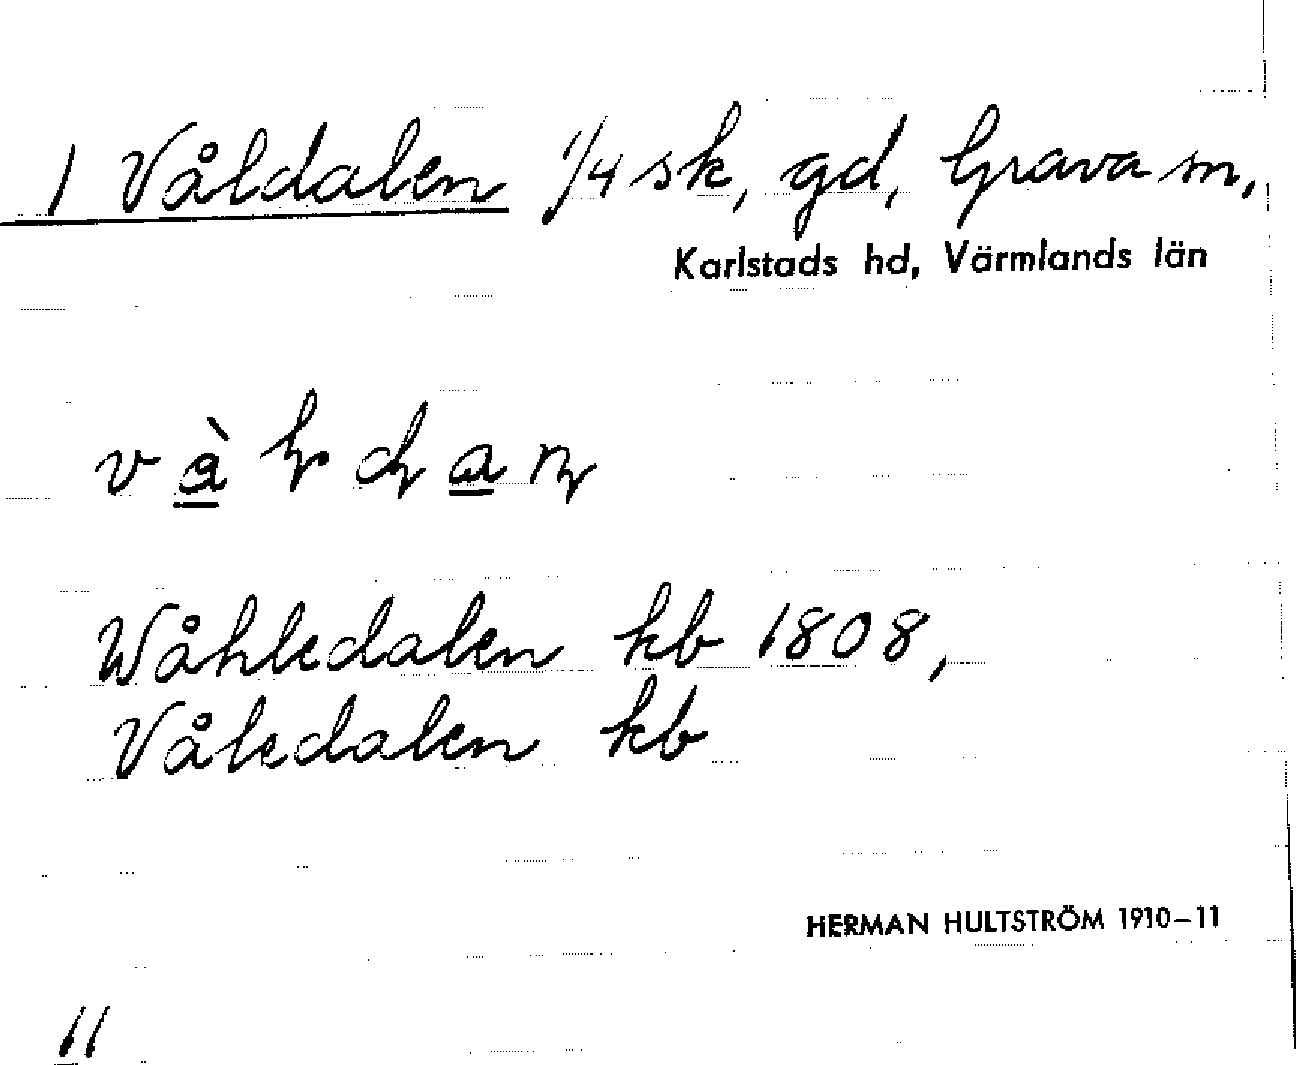 1 Våldalen 1/4 sk, gd, Grava sn,
Karlstads hd, Värmlands län
Wåhledalen kb 1808,
Våledalen kb
HERMAN HULTSTRÖM 1910–11
11